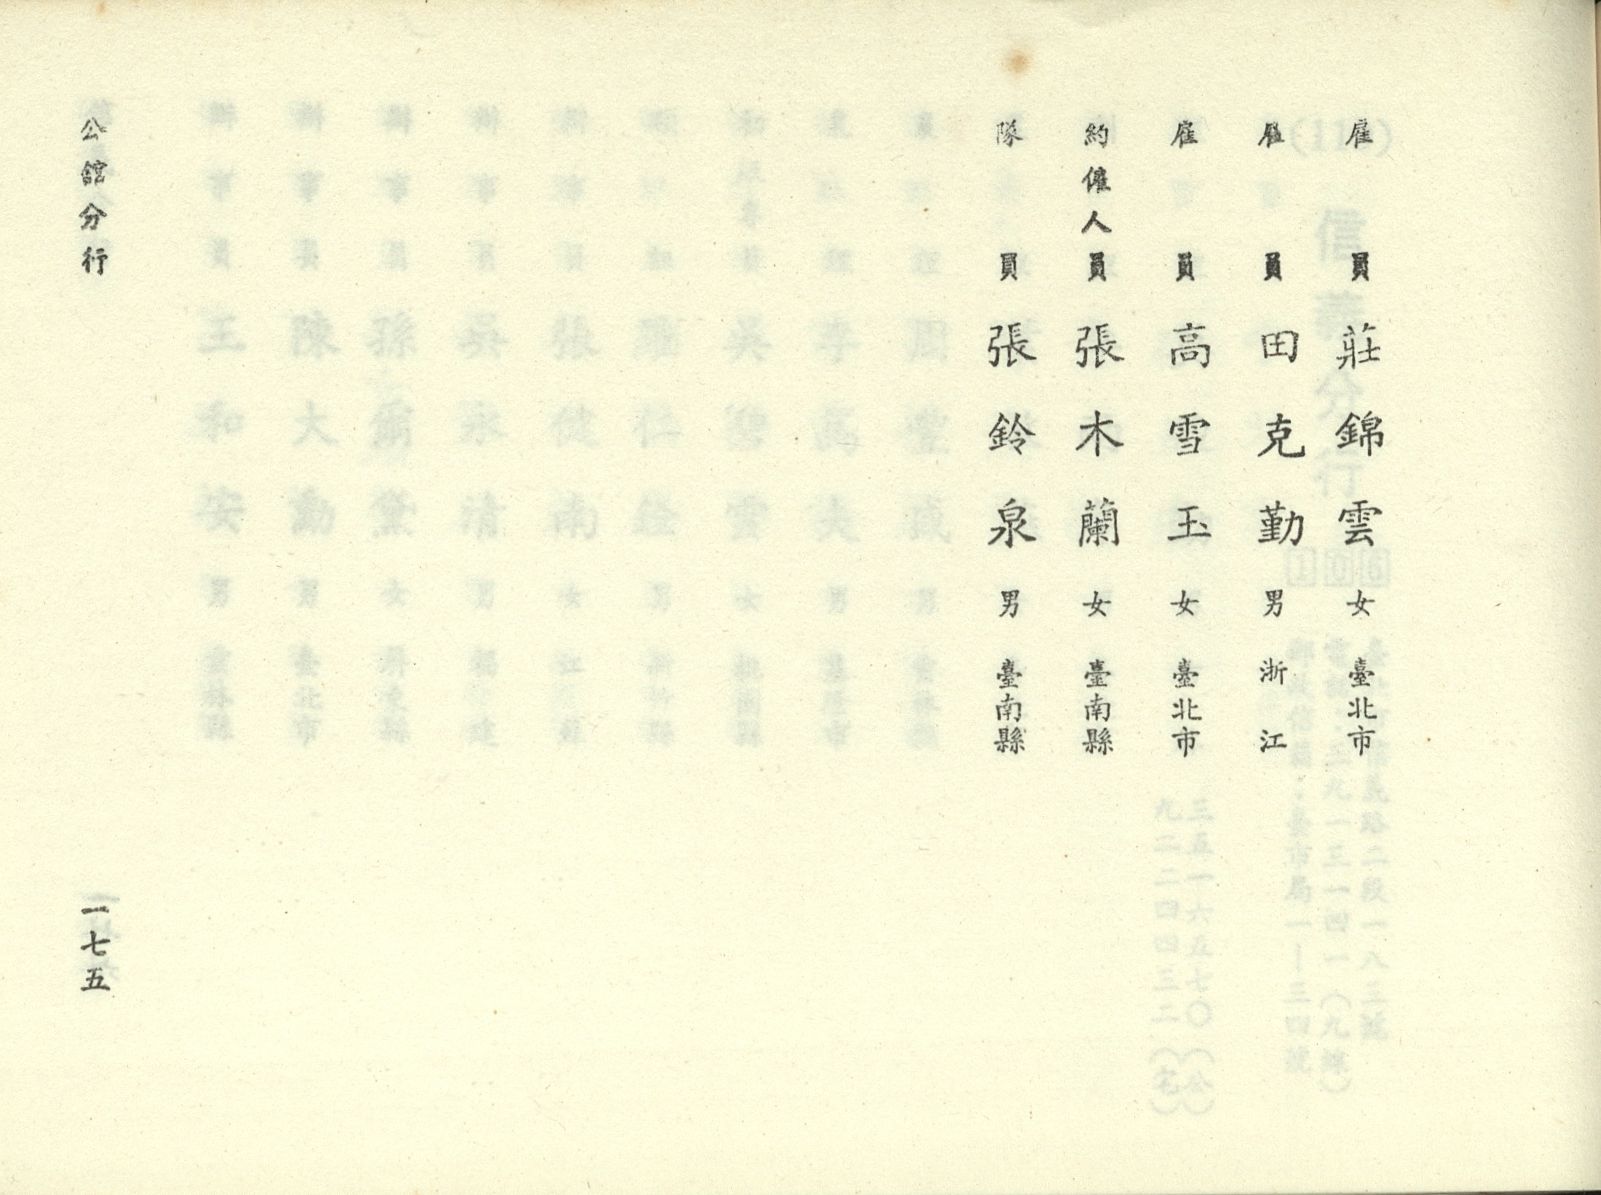 雇員 莊錦雲 女 臺北市
雇員 田克勤 男 浙江
雇員 高雪玉 女 臺北市
約僱人員 張木蘭 女 臺南縣
隊員 張鈴泉 男 臺南縣
公館分行
一七五